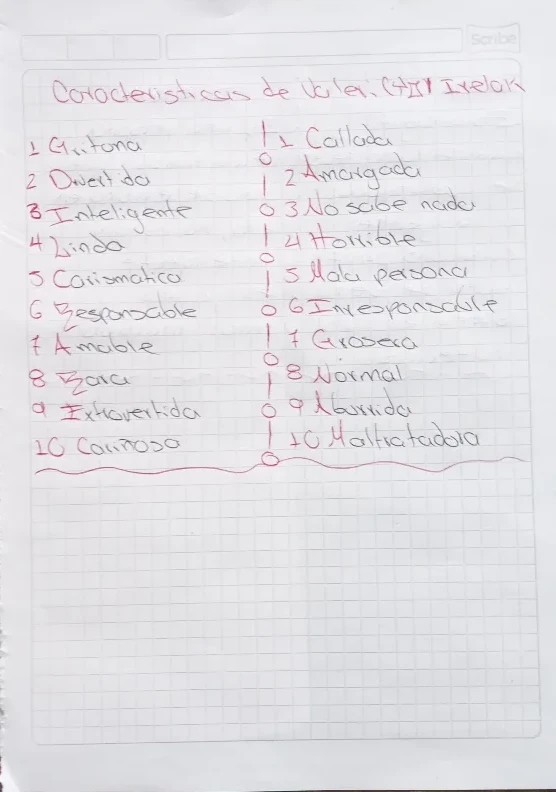 Scribe
Caracteristicas de Valeri
1 Gritona
2 Divertida
3 Inteligente
4 Linda
5 Carismatica
6 Responsable
7 Amable
8 Rara
9 Extrovertida
10 Cariñosa
1 Callada
2 Amargada
3 No sabe nada
4 Horrible
5 Mala persona
6 Inresponsable
7 Grosera
8 Normal
9 Aburrida
10 Maltratadora